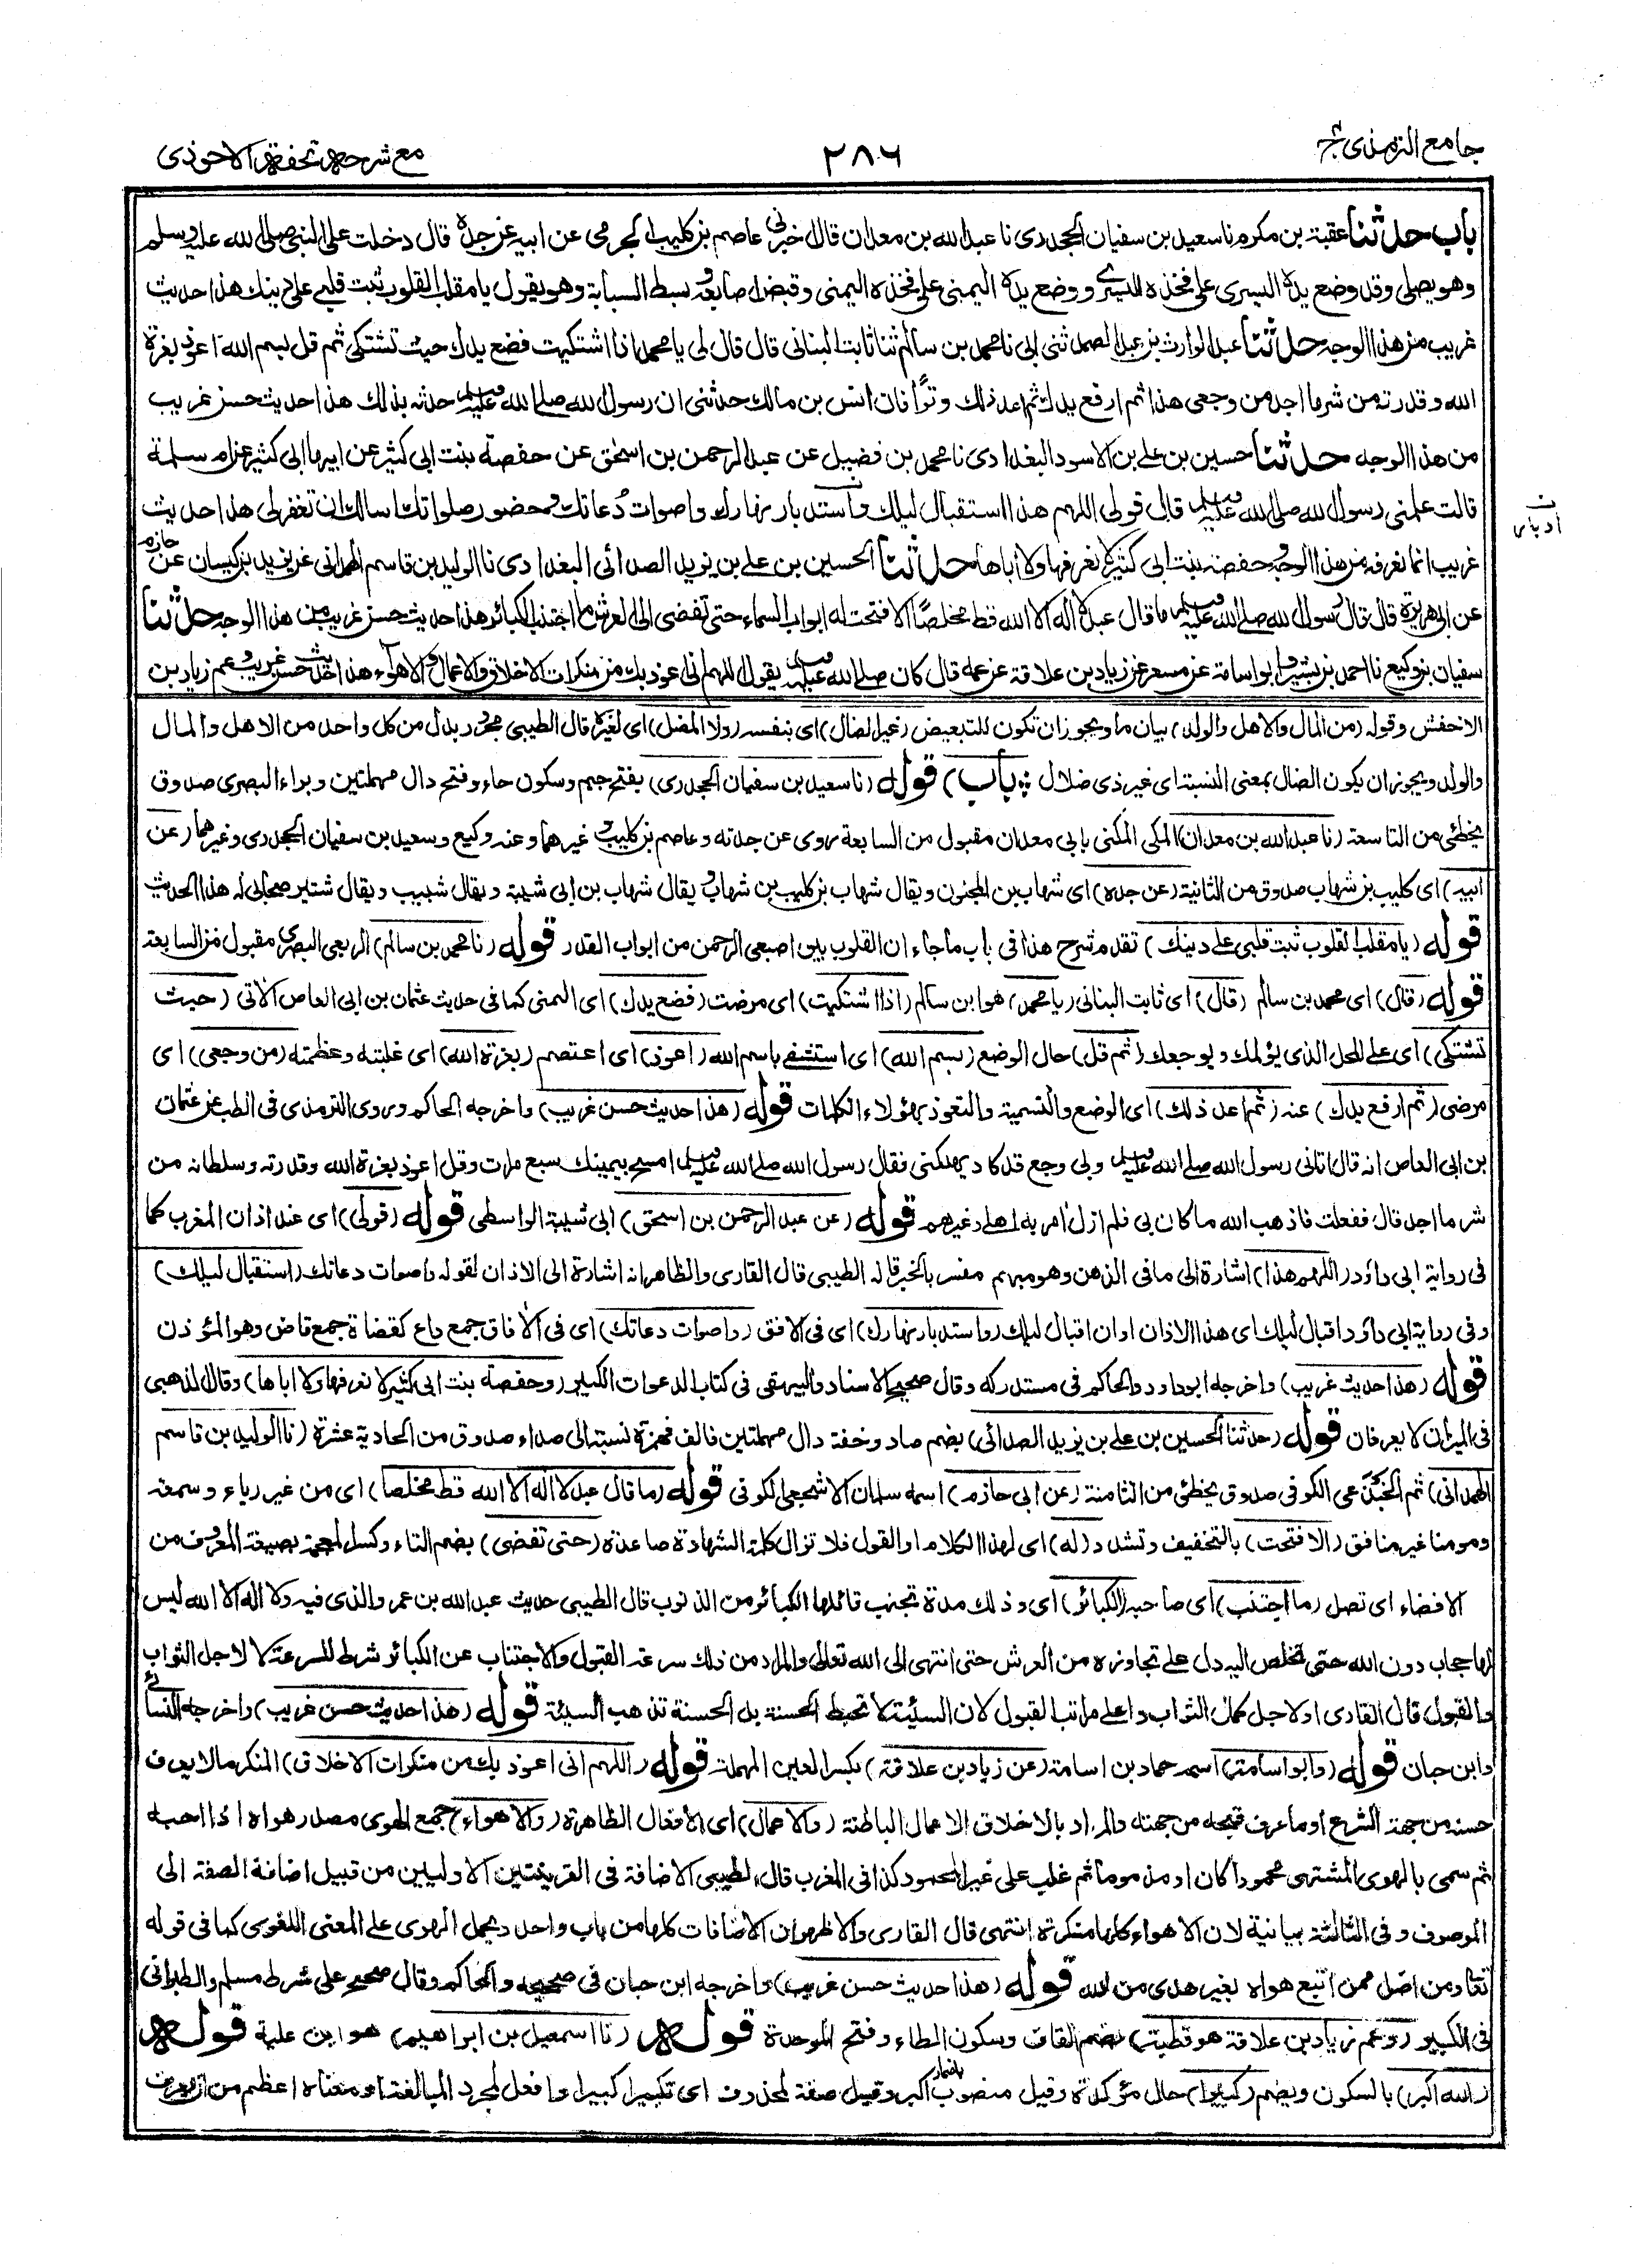 جامع الترمذی ج۴
۲۸۶
مع شرحه تحفة الاحوذی
باب حدثنا عقبة بن مكرم نا سعيد بن سفيان الجحدری نا عبد الله بن معدان قال اخبرنی عاصم بن كليب الجرمی عن ابيه عن جده قال دخلت علی النبی صلی الله عليه وسلم
وهو يصلی وقد وضع يده اليسری علی فخذه اليسری ووضع يده اليمنی علی فخذه اليمنی وقبض اصابعه وبسط السبابة وهو يقول يا مقلب القلوب ثبت قلبی علی دينك هذا حديث
غريب من هذا الوجه حدثنا عبد الوارث بن عبد الصمد ثنی ابی نا محمد بن سالم ثنا ثابت البنانی قال قال لی يا محمد اذا اشتكيت فضع يدك حيث تشتكی ثم قل بسم الله اعوذ بعزة
الله وقدرته من شر ما اجد من وجعی هذا ثم ارفع يدك ثم اعد ذلك وترًا فان انس بن مالك حدثنی ان رسول الله صلی الله عليه وسلم حدثه بذلك هذا حديث حسن غريب
من هذا الوجه حدثنا حسين بن علی بن الاسود البغدادی نا محمد بن فضيل عن عبد الرحمن بن اسحق عن حفصة بنت ابی كثير عن ابيها ابی كثير عن ام سلمة
قالت علمنی رسول الله صلی الله عليه وسلم قال قولی اللهم هذا استقبال ليلك واستدبار نهارك واصوات دُعاتك وحضور صلواتك اسالك ان تغفر لی هذا حديث
ن ادبار
غريب انما نعرفه من هذا الوجه وحفصة بنت ابی كثير لا نعرفها ولا اباها حدثنا الحسين بن علی بن يزيد الصدائی البغدادی نا الوليد بن قاسم الهمدانی عن يزيد بن كيسان عن ابی حازم
عن ابی هريرة قال قال رسول الله صلی الله عليه وسلم ما قال عبد لا اله الا الله قط مخلصًا الا فتحت له ابواب السماء حتی تفضی الی العرش ما اجتنب الكبائر هذا حديث حسن غريب من هذا الوجه حدثنا
سفيان بن وكيع نا احمد بن بشير وابو اسامة عن مسعر عن زياد بن علاقة عن عمه قال كان صلی الله عليه وسلم يقول اللهم انی اعوذ بك من منكرات الاخلاق والاعمال والاهوآء هذا حديث حسن غريب وعم زياد بن
الاخفش وقوله (من المال والاهل والولد) بيان ما ويجوز ان تكون للتبعيض (غير الضال) ای بنفسه (ولا المضل) ای لغيره قال الطيبی مجرور بدل من كل واحد من الاهل والمال
والولد ويجوز ان يكون الضال بمعنی النسبة ای غير ذی ضلال (باب) قوله (نا سعيد بن سفيان الجحدری) بفتح جيم وسكون حاء وفتح دال مهملتين وبراء البصری صدوق
يخطئ من التاسعة (نا عبد الله بن معدان) المكی المكنی بابی معدان مقبول من السابعة روی عن جدته وعاصم بن كليب وغيرهما وعنه وكيع وسعيد بن سفيان الجحدری وغيرهما (عن
ابيه) ای كليب بن شهاب صدوق من الثانية (عن جده) ای شهاب بن المجنون ويقال شهاب بن كليب بن شهاب ويقال شهاب بن ابی شيبة ويقال شبيب ويقال شتير صحابی له هذا الحديث
قوله (يا مقلب القلوب ثبت قلبی علی دينك) تقدم شرح هذا فی باب ما جاء ان القلوب بين اصبعی الرحمن من ابواب القدر قوله (نا محمد بن سالم) الربعی البصری مقبول من السابعة
قوله (قال) ای محمد بن سالم (قال) ای ثابت البنانی (يا محمد) هو ابن سالم (اذا اشتكيت) ای مرضت (فضع يدك) ای اليمنی كما فی حديث عثمان بن ابی العاص الاٰتی (حيث
تشتكی) ای علی المحل الذی يؤلمك ويوجعك (ثم قل) حال الوضع (بسم الله) ای استشفی باسم الله (اعوذ) ای اعتصم (بعزة الله) ای غلبته وعظمته (من وجعی) ای
مرضی (ثم ارفع يدك) عنه (ثم اعد ذلك) ای الوضع والتسمية والتعوذ بهؤلاء الكلمات قوله (هذا حديث حسن غريب) واخرجه الحاكم وروی الترمذی فی الطب عن عثمان
بن ابی العاص انه قال اتانی رسول الله صلی الله عليه وسلم ولی وجع قد كاد يهلكنی فقال رسول الله صلی الله عليه وسلم امسح بيمينك سبع مرات وقل اعوذ بعزة الله وقدرته وسلطانه من
شر ما اجد قال ففعلت فاذهب الله ما كان بی فلم ازل اٰمر به اهلی وغيرهم قوله (عن عبد الرحمن بن اسحق) ابی شيبة الواسطی قوله (قولی) ای عند اذان المغرب كما
فی رواية ابی داؤد (اللهم هذا) اشارة الی ما فی الذهن وهو مبهم مفسر بالخبر قاله الطيبی قال القاری والظاهر انه اشارة الی الاذان لقوله واصوات دعاتك (استقبال ليلك)
وفی رواية ابی داؤد اقبال ليلك ای هذا الاذان اوان اقبال ليلك (واستدبار نهارك) ای فی الافق (واصوات دعاتك) ای فی الاٰفاق جمع داع كقضاة جمع قاض وهو المؤذن
قوله (هذا حديث غريب) واخرجه ابو داود والحاكم فی مستدركه وقال صحيح الاسناد والبيهقی فی كتاب الدعوات الكبير (وحفصة بنت ابی كثير لا نعرفها ولا اباها) وقال الذهبی
فی الميزان لا يعرفان قوله (حدثنا الحسين بن علی بن يزيد الصدائی) بضم صاد وخفة دال مهملتين فالف فهمزة نسبة الی صداء صدوق من الحادية عشرة (نا الوليد بن قاسم
الهمدانی) ثم الخبذعی الكوفی صدوق يخطئ من الثامنة (عن ابی حازم) اسمه سلمان الاشجعی الكوفی قوله (ما قال عبد لا اله الا الله قط مخلصا) ای من غير رياء وسمعة
ومومنا غير منافق (الا فتحت) بالتخفيف وتشدد (له) ای لهذا الكلام او القول فلا تزال كلمة الشهادة صاعدة (حتی تفضی) بضم التاء وكسر المعجمة بصيغة المعروف من
الافضاء ای تصل (ما اجتنب) ای صاحبه (الكبائر) ای وذلك مدة تجنب قائلها الكبائر من الذنوب قال الطيبی حديث عبد الله بن عمر والذی فيه ولا اله الا الله ليس
لها حجاب دون الله حتی تخلص اليه دل علی تجاوزه من العرش حتی انتهی الی الله تعالی والمراد من ذلك سرعة القبول والاجتناب عن الكبائر شرط للسرعة لا لاجل الثواب
والقبول قال القاری او لاجل كمال الثواب واعلی مراتب القبول لان السيئة لا تحبط الحسنة بل الحسنة تذهب السيئة قوله (هذا حديث حسن غريب) واخرجه النسائی
وابن حبان قوله (وابو اسامة) اسمه حماد بن اسامة (عن زياد بن علاقة) بكسر العين المهملة قوله (اللهم انی اعوذ بك من منكرات الاخلاق) المنكر ما لا يعرف
حسنه من جهة الشرع او ما عرف قبحه من جهته والمراد بالاخلاق الاعمال الباطنة (والاعمال) ای الافعال الظاهرة (والاهواء) جمع الهوی مصدر هواه اذا احبه
ثم سمی بالهوی المشتهی محمودا كان او مذموما ثم غلب علی غير المحمود كذا فی المغرب قال الطيبی الاضافة فی القرينتين الاوليين من قبيل اضافة الصفة الی
الموصوف وفی الثالثة بيانية لان الاهواء كلها منكرة انتهی قال القاری والاظهر ان الاضافات كلها من باب واحد ويحمل الهوی علی المعنی اللغوی كما فی قوله
تعالی ومن اضل ممن اتبع هواه بغير هدی من الله قوله (هذا حديث حسن غريب) واخرجه ابن حبان فی صحيحه والحاكم وقال صحيح علی شرط مسلم والطبرانی
فی الكبير (وعم زياد بن علاقة هو قطبة) بضم القاف وسكون الطاء وفتح الموحدة قوله (نا اسمعيل بن ابراهيم) هو ابن علية قوله
(الله اكبر) بالسكون ويضم (كبيرا) حال مؤكدة وقيل منصوب باضمار اكبر وقيل صفة لمحذوف ای تكبيرا كبيرا وافعل لمجرد المبالغة او معناه اعظم من ان يعرف